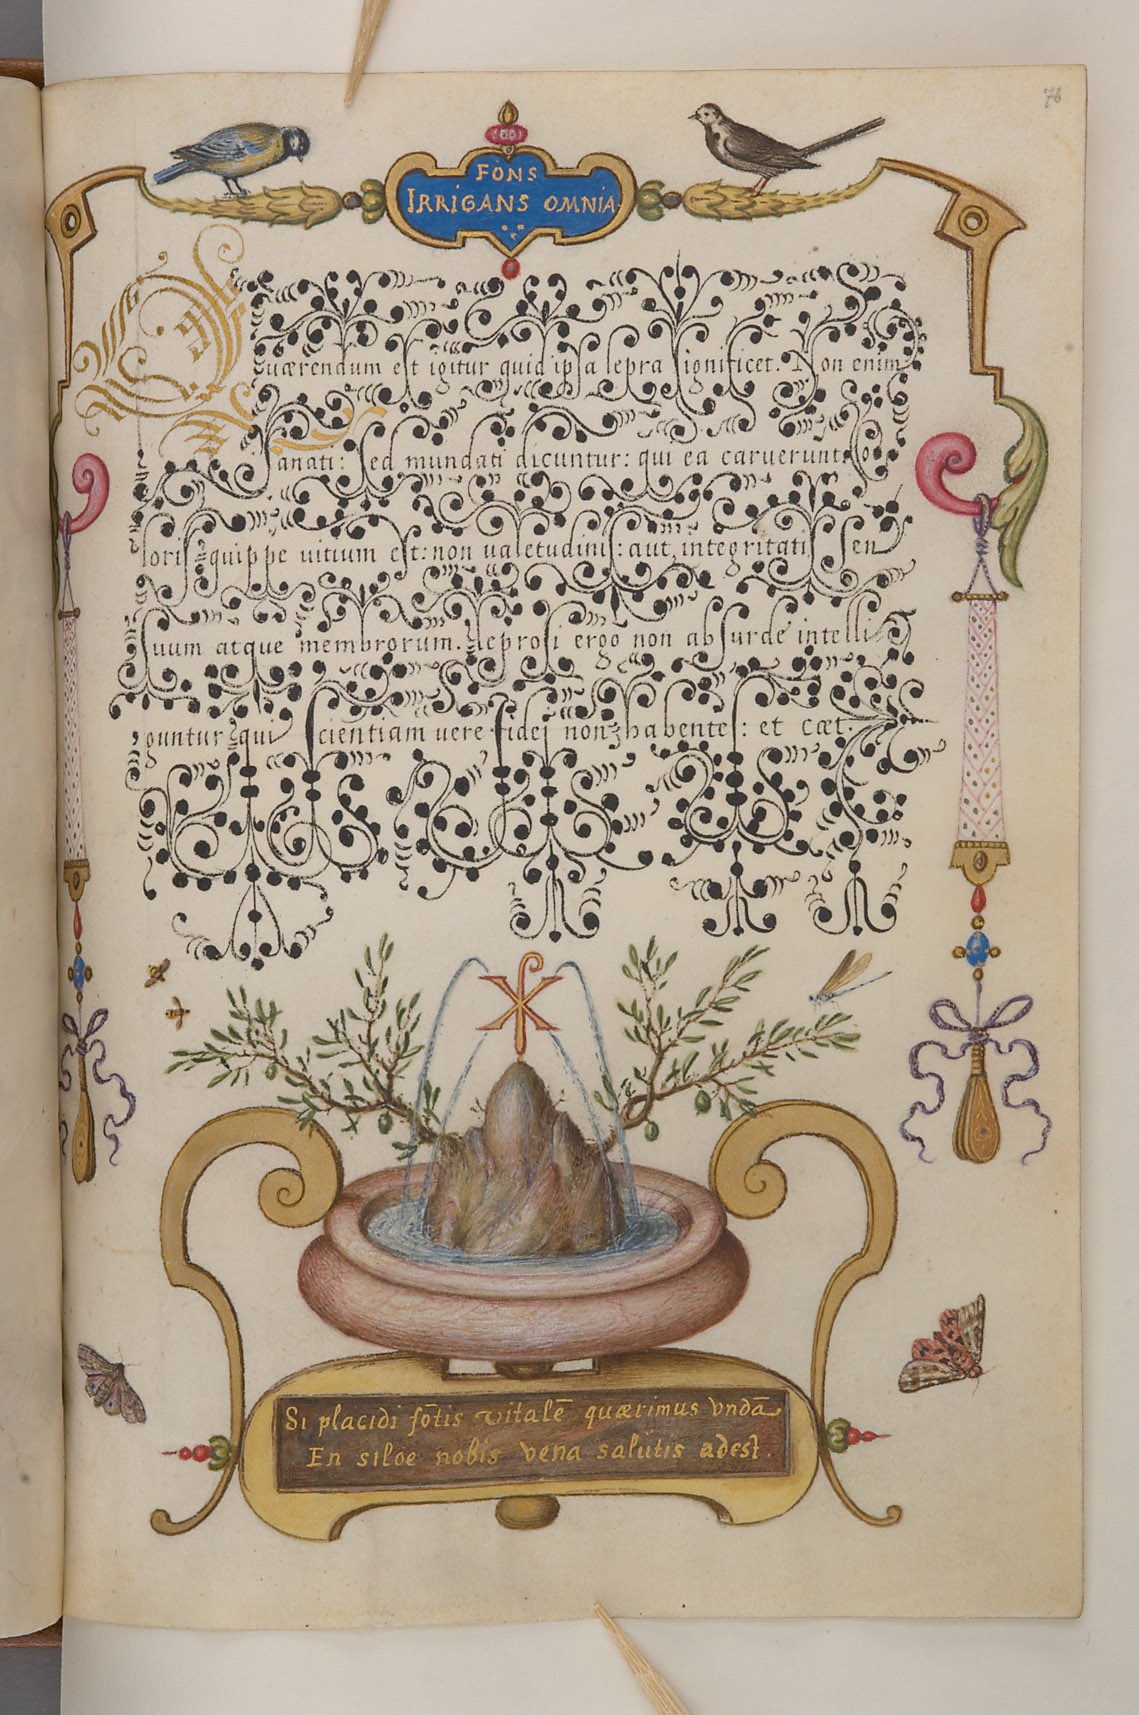 78
FONS
IRRIGANS OMNIA
Quærendum est igitur quid ipsa lepra significet. Non enim
sanati: sed mundati dicuntur: qui ea caruerunt. Co
loris quippe uitium est: non ualetudinis: aut integritatis sen
suum atque membrorum. Leprosi ergo non absurde intelli
guntur qui scientiam uere fidei non habentes: et cæt.
Si placidi fōtis vitalē quærimus vndā
En siloe nobis vena salutis adest.